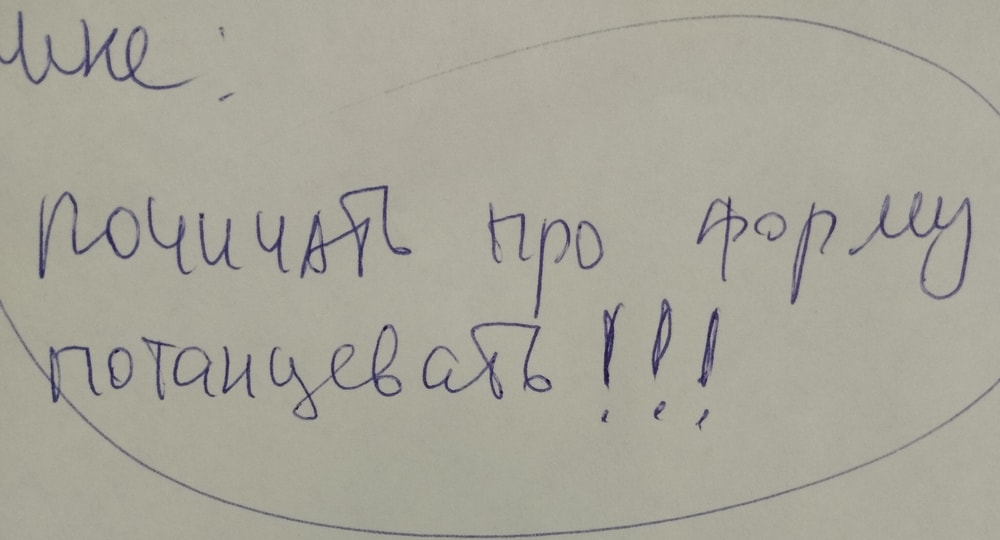 почичать про форму
потанцевать!!!